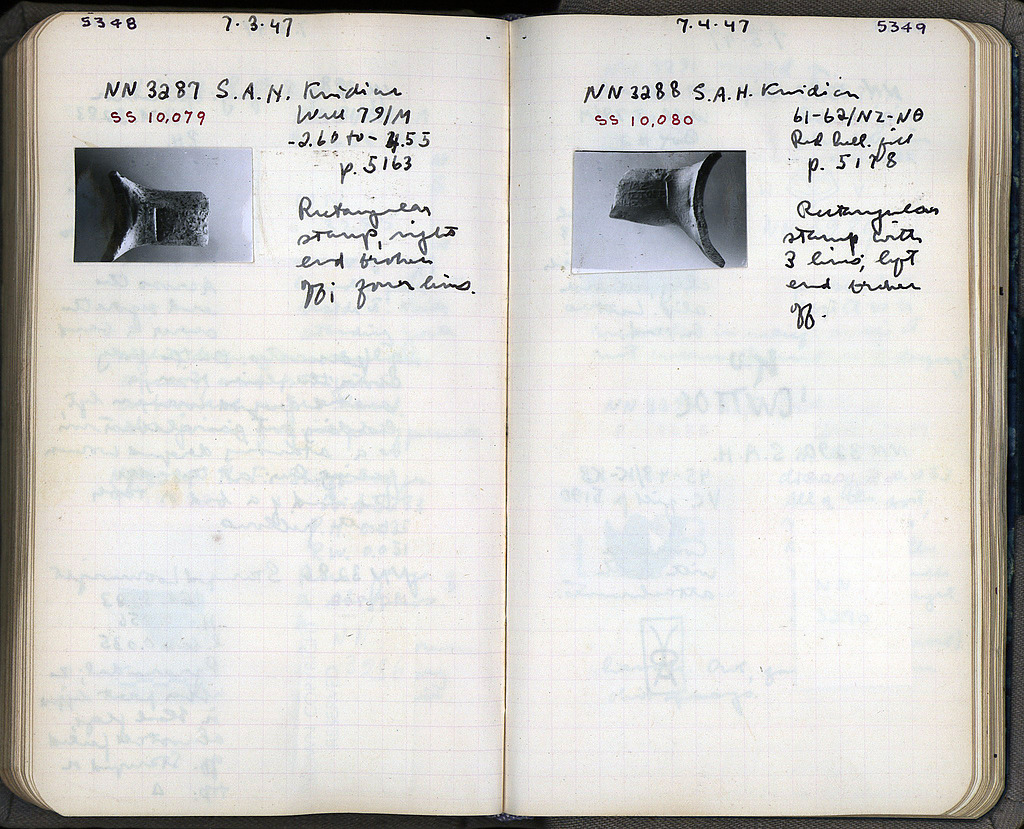 5348
7.3.47
NN 3287 S.A.H. Knidian
SS 10,079
Well 79/M
-2.60 to -4.55
p. 5163
Rectangular
stamp, right
end broken
off; four lines.
7.4.47
5349
NN 3288 S.A.H. Knidian
SS 10,080
61-62/NZ-NΘ
Red Hell. fill
p. 5178
Rectangular
stamp with
3 lines, left
end broken
off.